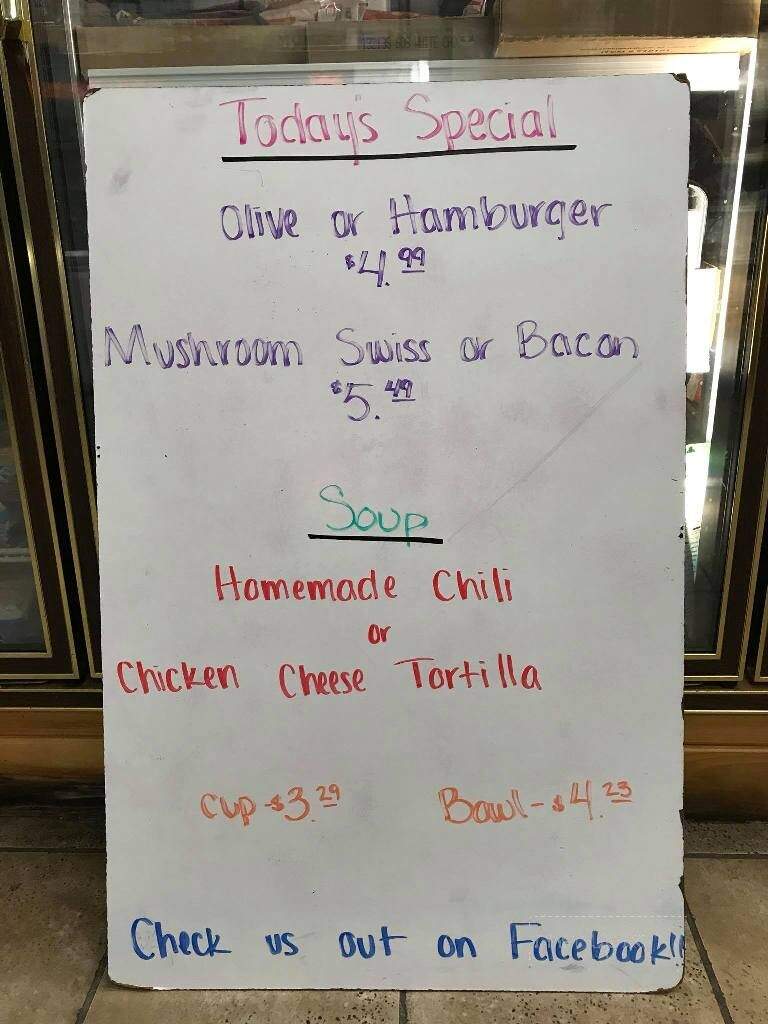 Today's Special
Olive or Hamburger
$4.99
Mushroom Swiss or Bacon
$5.49
Soup
Homemade Chili
or
Chicken Cheese Tortilla
Cup-$3.29 Bowl-$4.23
Check us out on Facebook!!